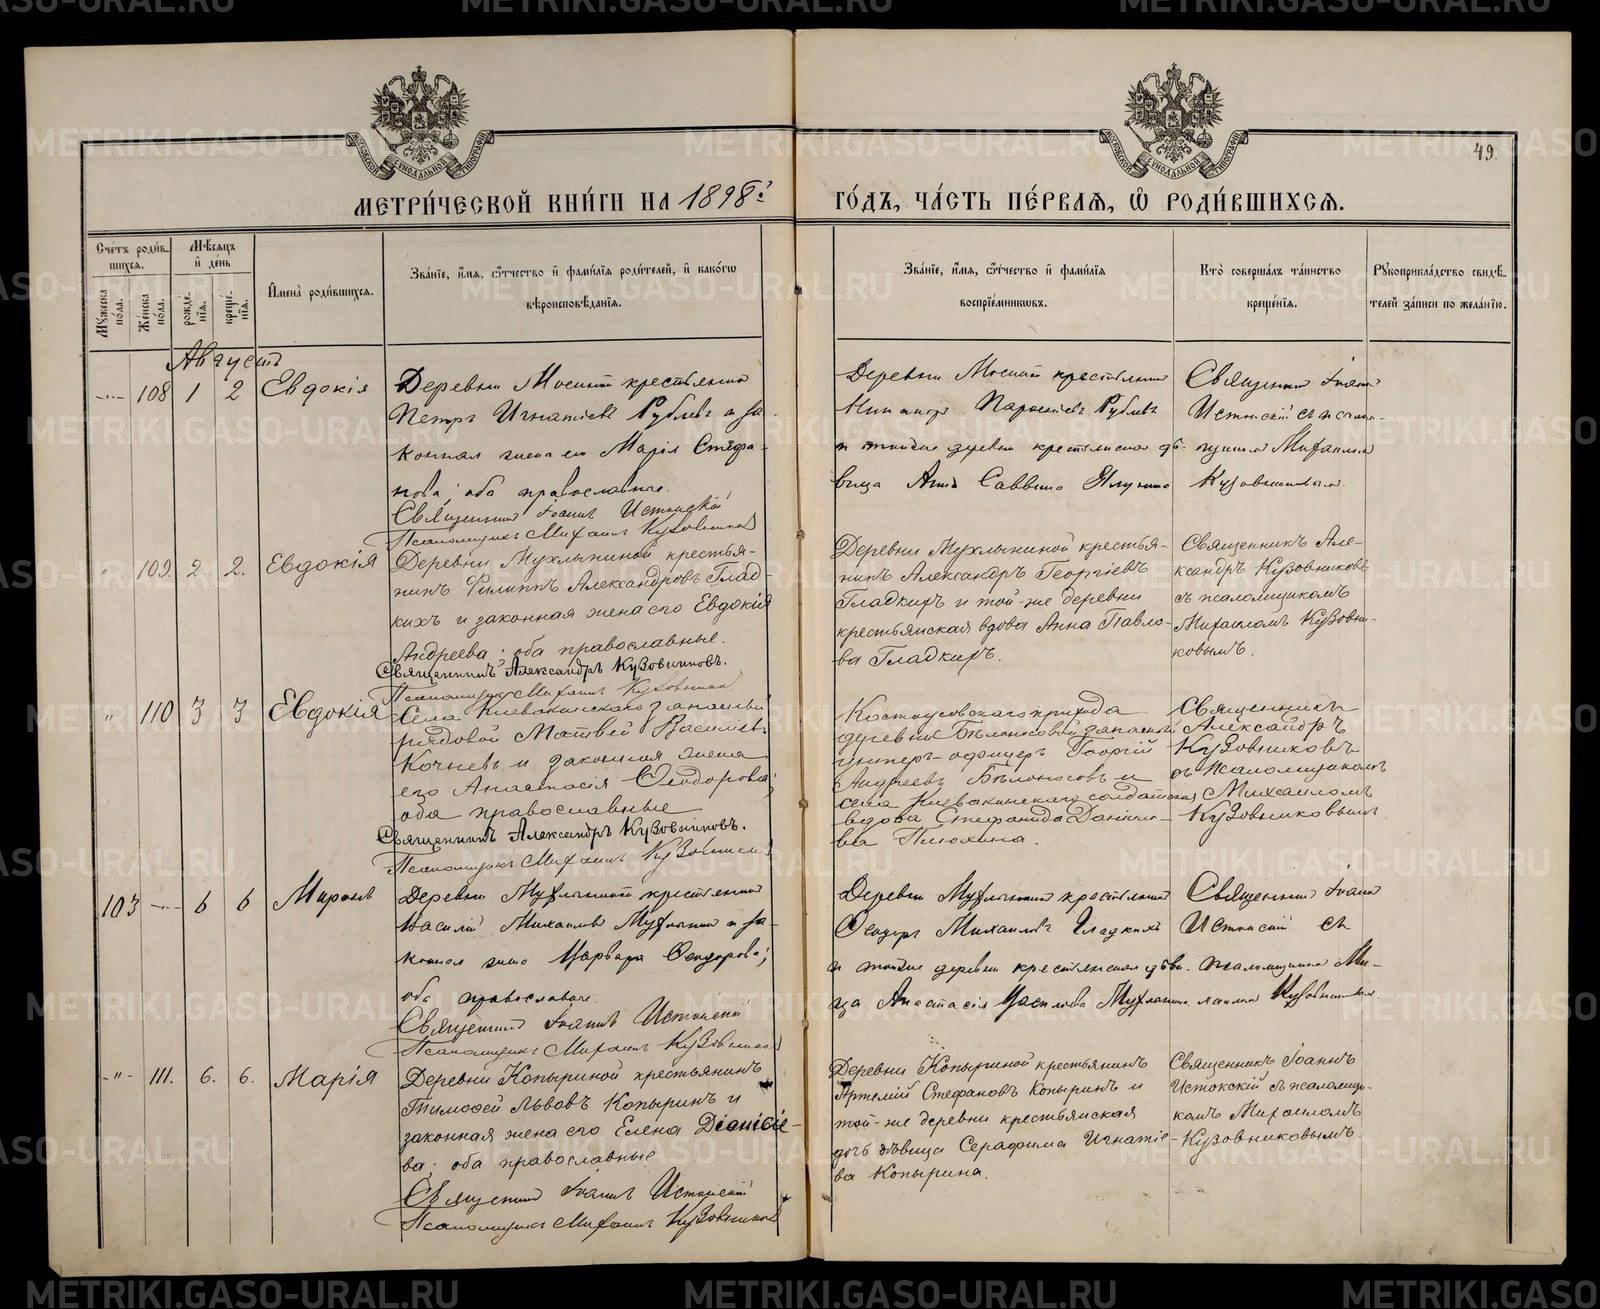 49.
МЕТРИ́ЧЕСКОЙ КНИ́ГИ НА 1898й
ГО́ДЪ, ЧА́СТЬ ПЕ́РВАЯ, Ѡ҆ РОДИ́ВШИХСЯ.
Сче́тъ роди́в-
шихся.
Му́жеска по́ла.
Же́нска по́ла.
Мѣ́сяцъ и҆ де́нь
рожде́-
нїя.
креще́-
нїя.
И҆мена̀ роди́вшихся.
Зва́нїе, и҆́мя, ѻ҆́тчество и҆ фами́лїя роди́телей, и҆ како́гѡ
вѣроисповѣ́данїя.
Зва́нїе, и҆́мя, ѻ҆́тчество и҆ фами́лїя
воспрїе́мниковъ.
Кто̀ соверша́лъ та́инство
креще́нїя.
Рꙋкоприкла́дство свидѣ́-
телей за́писи по жела́нїю.
Августъ
108 1 2 Евдокія
Петръ Игнатіевъ Рублевъ и за-
конная жена его Марія Стефа-
нова; оба православные.
Священникъ Іоаннъ Истокскій
Псаломщикъ Михаилъ Кузовниковъ
Рублевъ
Священникъ Іоаннъ
Истокскій съ псалом-
щикомъ Михаиломъ
Кузовниковымъ.
109. 2. 2. Евдокія
Деревни Мухлыниной крестья-
нинъ Филиппъ Александровъ Глад-
кихъ и законная жена его Евдокія
Андреева; оба православные.
Священникъ Александръ Кузовниковъ.
Псаломщикъ Михаилъ Кузовниковъ
Деревни Мухлыниной крестья-
нинъ Александръ Георгіевъ
Гладкихъ и той-же деревни
крестьянская вдова Анна Павло-
ва Гладкихъ.
Священникъ Але-
ксандръ Кузовниковъ
съ псаломщикомъ
Михаиломъ Кузовни-
ковымъ.
110 3 3 Евдокія
Села Киевакинскаго запасный
рядовой Матвей Василіевъ
Кочневъ и законная жена
его Анастасія Ѳеодорова;
оба православные
Священникъ Александръ Кузовниковъ.
Псаломщикъ Михаилъ Кузовниковъ
Костоусовскаго прихода
деревни Бѣлоносовой запасный
унтеръ-офицеръ Георгій
Андреевъ Бѣлоносовъ и
села Киевакинскаго солдатская
вдова Стефанида Даніи-
ва Плюхина.
Священникъ
Александръ
Кузовниковъ
съ псаломщикомъ
Михаиломъ
Кузовниковымъ
103 6 6 Миронъ
Василій Михаиловъ и за-
конная жена Варвара Ѳеодорова;
оба православные.
Священникъ Іоаннъ Истокскій
Псаломщикъ Михаилъ Кузовниковъ
Ѳеодоръ Михаиловъ Гладкихъ
и той-же деревни крестьянская дѣви-
ца Анастасія
Священникъ Іоаннъ
Истокскій съ
псаломщикомъ Ми-
хаиломъ Кузовниковымъ.
111. 6. 6. Марія
Деревни Копыриной крестьянинъ
Тимофей Львовъ Копыринъ и
законная жена его Елена Діанісіе-
ва; оба православные
Священникъ Іоаннъ Истокскій
Псаломщикъ Михаилъ Кузовниковъ
Деревни Копыриной крестьянинъ
Артемій Стефановъ Копыринъ и
той-же деревни крестьянская
дочь дѣвица Серафима Игнатіе-
ва Копырина.
Священникъ Іоаннъ
Истокскій съ псаломщи-
комъ Михаиломъ
Кузовниковымъ.
METRIKI.GASO-URAL.RU